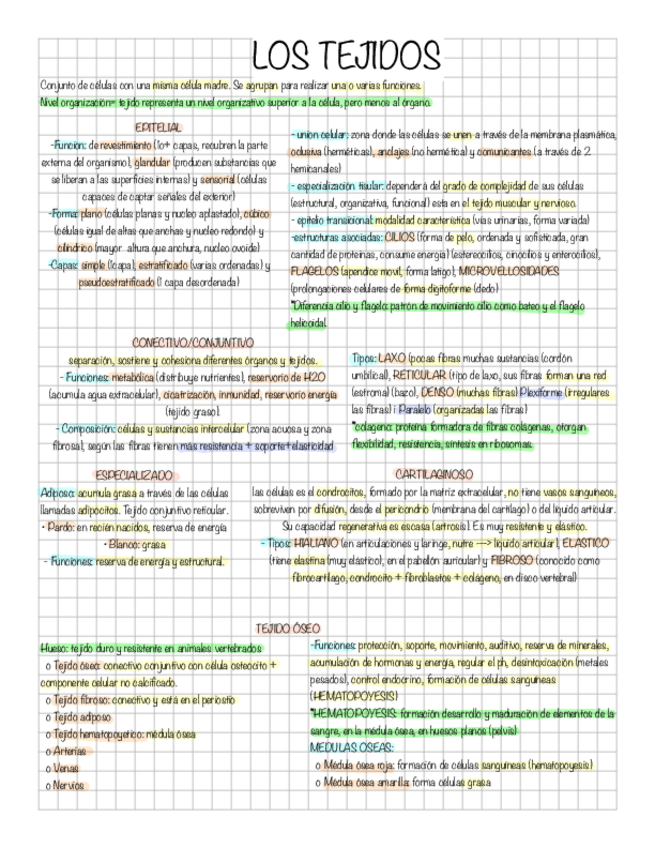 LOS TEJIDOS
Conjunto de células con una misma célula madre. Se agrupan para realizar una o varias funciones.
Nivel organización= tejido representa un nivel organizativo superior a la célula, pero menos al órgano.
EPITELIAL
-Función: de revestimiento (1o+ capas, recubren la parte
externa del organismo), glandular (producen substancias que
se liberan a las superficies internas) y sensorial (células
capaces de captar señales del exterior)
-Forma: plano (células planas y nucleo aplastado), cúbico
(células igual de altas que anchas y nucleo redondo) y
cilíndrico (mayor altura que anchura, nucleo ovoide)
-Capas: simple (1capa), estratificado (varias ordenadas) y
pseudoestratificado (1 capa desordenada)
- unión celular: zona donde las células se unen a través de la membrana plasmática,
oclusiva (herméticas), anclajes (no hermética) y comunicantes (a través de 2
hemicanales)
- especialización tisular: dependerá del grado de complejidad de sus células
(estructural, organizativa, funcional) esta en el tejido muscular y nervioso.
- epitelio transicional: modalidad característica (vías urinarias, forma variada)
-estructuras asociadas: CILIOS (forma de pelo, ordenada y sofisticada, gran
cantidad de proteínas, consume energía) (estereocilios, cinocilios y enterocilios),
FLAGELOS (apendice movil, forma latigo), MICROVELLOSIDADES
(prolongaciones celulares de forma digitoforme (dedo)
*Diferencia cilio y flagelo: patrón de movimiento cilio como bateo y el flagelo
helicoidal.
CONECTIVO/CONJUNTIVO
separación, sostiene y cohesiona diferentes órganos y tejidos.
- Funciones: metabólica (distribuye nutrientes), reservorio de H2O
(acumula agua extracelular), cicatrización, inmunidad, reservorio energía
(tejido graso).
- Composición: células y sustancias intercelular (zona acuosa y zona
fibrosa), según las fibras tienen más resistencia + soporte+elasticidad
Tipos: LAXO (pocas fibras muchas sustancias (cordón
umbilical), RETICULAR (tipo de laxo, sus fibras forman una red
(estroma) (bazo), DENSO (muchas fibras) Plexiforme (irregulares
las fibras) i Paralelo (organizadas las fibras)
*colageno: proteína formadora de fibras colágenas, otorgan
flexibilidad, resistencia, síntesis en ribosomas.
ESPECIALIZADO
Adiposo: acumula grasa a través de las células
llamadas adipocitos. Tejido conjuntivo reticular.
• Pardo: en recién nacidos, reserva de energía
• Blanco: grasa
- Funciones: reserva de energía y estructural.
CARTILAGINOSO
las células es el condrocitos, formado por la matriz extracelular, no tiene vasos sanguíneos,
sobreviven por difusión, desde el pericondrio (membrana del cartílago) o del líquido articular.
Su capacidad regenerativa es escasa (artrosis). Es muy resistente y elástico.
- Tipos: HIALIANO (en articulaciones y laringe, nutre —> líquido articular), ELASTICO
(tiene elastina (muy elastico), en el pabellón auricular) y FIBROSO (conocido como
fibrocartílago, condrocito + fibroblastos + colágeno, en disco vertebral)
TEJIDO ÓSEO
Hueso: tejido duro y resistente en animales vertebrados
o Tejido óseo: conectivo conjuntivo con célula osteocito +
componente celular no calcificado.
o Tejido fibroso: conectivo y está en el periostio
o Tejido adiposo
o Tejido hematopoyetico: médula ósea
o Arterias
o Venas
o Nervios
-Funciones: protección, soporte, movimiento, auditivo, reserva de minerales,
acumulación de hormonas y energía, regular el ph, desintoxicación (metales
pesados), control endocrino, formación de células sanguíneas
(HEMATOPOYESIS)
*HEMATOPOYESIS: formación desarrollo y maduración de elementos de la
sangre, en la médula ósea, en huesos planos (pelvis)
MEDULAS OSEAS:
o Médula ósea roja: formación de células sanguíneas (hematopoyesis)
o Médula ósea amarilla: forma células grasa